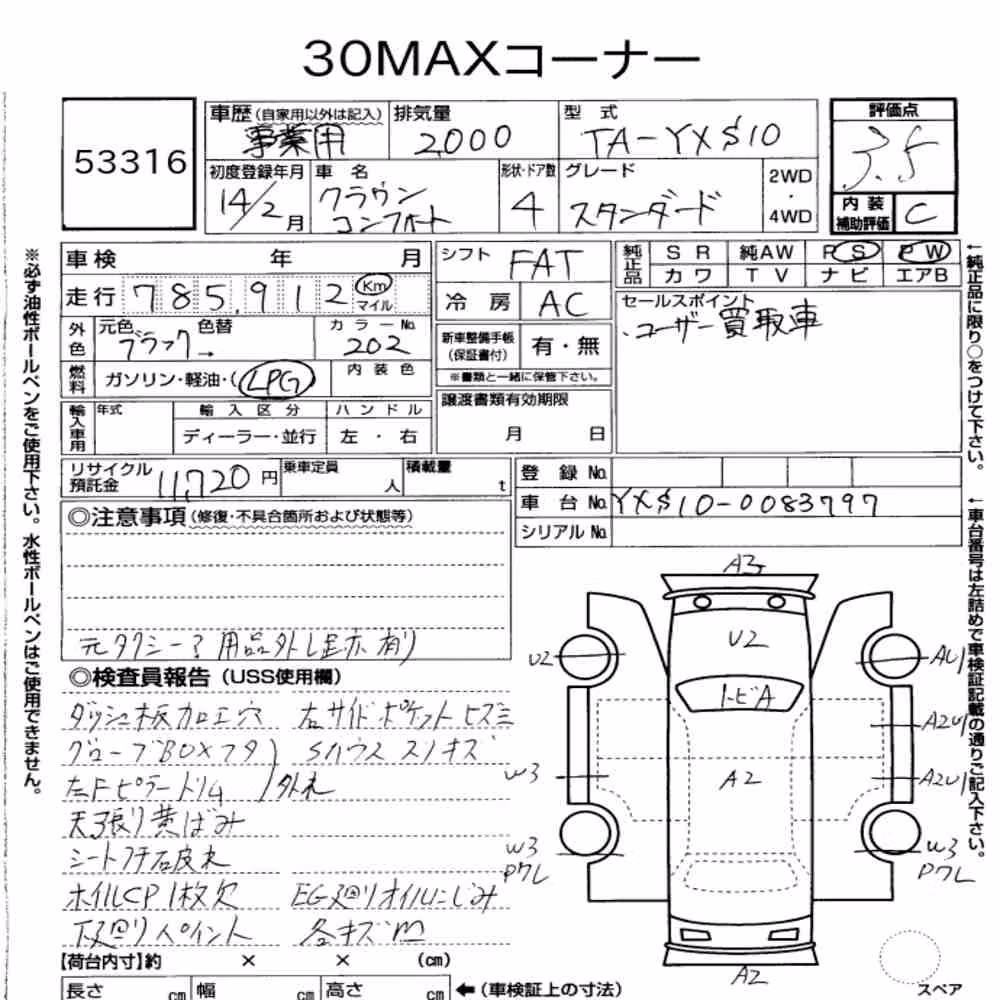 30MAXコーナー
53316
車歴 (自家用以外は記入) 事業用
排気量 2,000
型式 TA-YXS10
評価点 3.5
初度登録年月 14/2月
車名 クラウン コンフォート
形状・ドア数 4
グレード スタンダード
2WD・4WD
内装補助評価 C
車検 年 月
シフト FAT
純正品 SR 純AW PS PW
カワ TV ナビ エアB
走行 785,912 Km マイル
冷房 AC
セールスポイント
・ユーザー買取車
外色 元色 ブラック→ 色替
カラーNo. 202
新車整備手帳 (保証書付) 有・無
※書類と一緒に保管下さい。
燃料 ガソリン・軽油・(LPG)
内装色
譲渡書類有効期限
月 日
輸入車用 年式 輸入区分 ハンドル
ディーラー・並行 左・右
リサイクル預託金 11,720円
乗車定員 人
積載量 t
登録No.
車台No. YXS10-0083797
シリアルNo.
◎注意事項 (修復・不具合箇所および状態等)
元タクシー 用品外し跡有り
◎検査員報告 (USS使用欄)
ダッシュ板加工穴 右サイドポケットヒズミ
グローブBOXフタ
左Fピラートリム 外れ
天張り黄ばみ
シートフチ石皮れ
ホイルCP1枚欠 EG廻りオイルにじみ
下廻りペイント 各キズ凹
【荷台内寸】約 × × (cm)
長さ cm 幅 cm 高さ cm ←(車検証上の寸法)
A3
U2
U2
AU1
トビA
A2U1
W3
A2
A2U1
W3
Pワレ
W3
Pワレ
A2
スペア
※必ず油性ボールペンをご使用下さい。水性ボールペンはご使用できません。
←純正品に限り○をつけて下さい。
←車台番号は左詰めで車検証記載の通りご記入下さい。